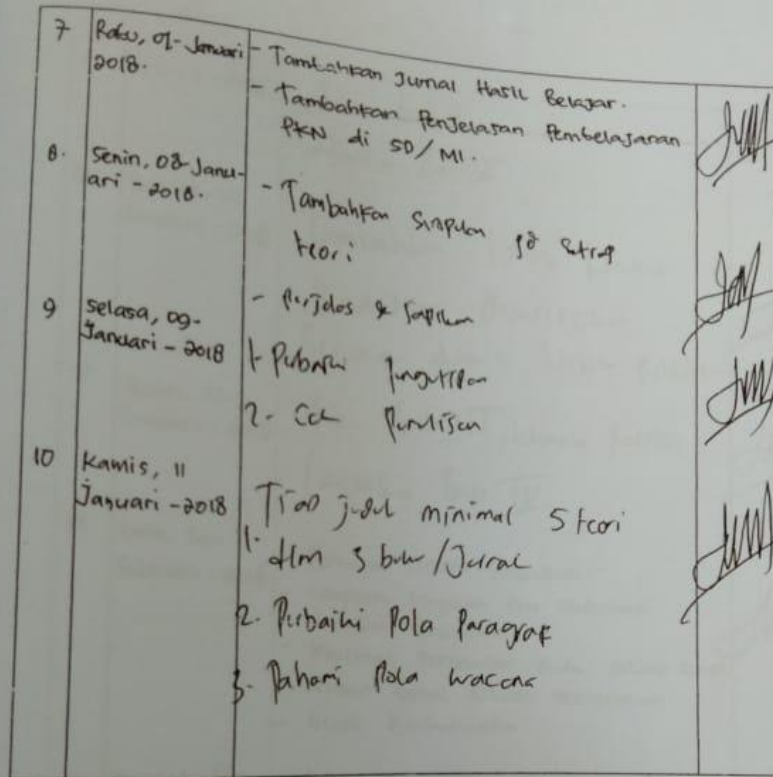 7 Rabu, 01-Januari
2018.
- Tambahkan Jurnal Hasil Belajar.
- Tambahkan Penjelasan Pembelajaran
PKN di SD/MI.
8. Senin, 08-Janu-
ari - 2018.
- Tambahkan simpulan
teori
- Perjelas &
9 Selasa, 09-
Januari - 2018
1- Perbaiki pengutipan
2- Cek Penulisan
10 Kamis, 11
Januari - 2018
1. Tiap judul minimal 5 teori
dlm 3 buku/Jurnal
2. Perbaiki Pola Paragraf
3. Pahami Pola wacana